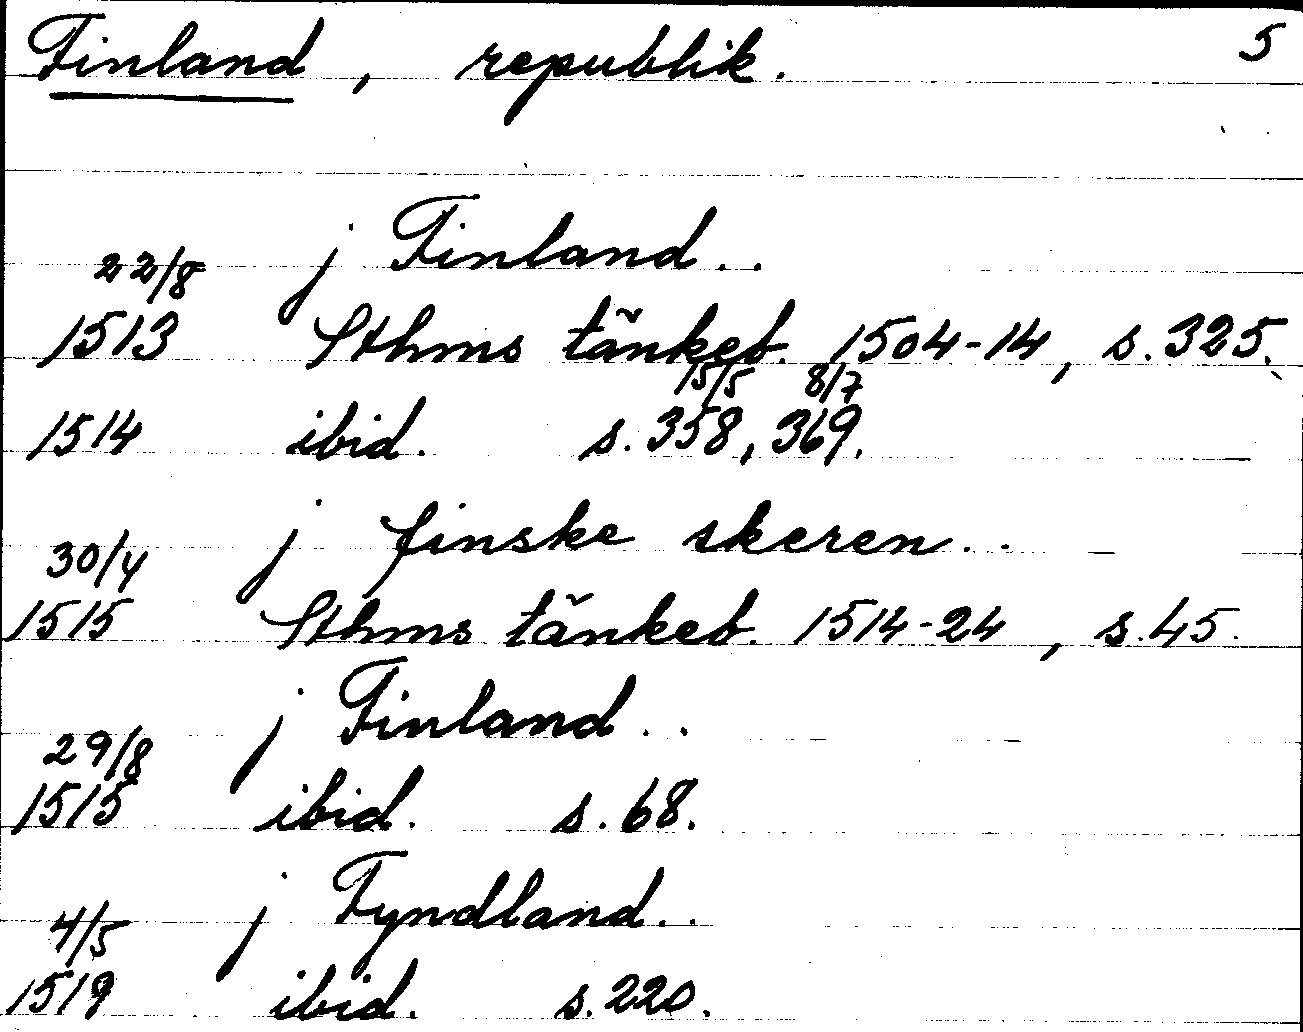 Finland, republik. 5
j Finland..
22/8
1513 Sthms tänkeb. 1504-14, s. 325.
15/5 8/7
1514 ibid. s. 358, 369.
j finske skeren..
30/4
1515 Sthms tänkeb. 1514-24, s. 45.
j Finland..
29/8
1515 ibid. s. 68.
j Fyndland..
4/5
1519 ibid. s. 220.